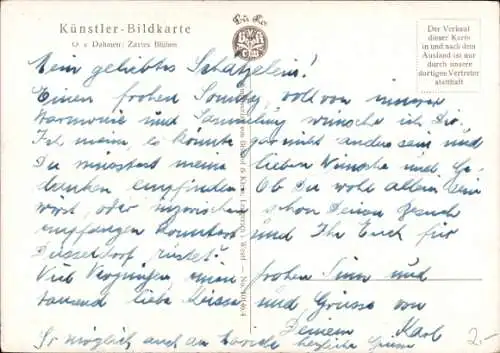 Künstler-Bildkarte
O. v. Dahmen: Zartes Blühen
Der Verkauf
dieser Karte
in und nach dem
Ausland ist nur
durch unsere
dortigen Vertreter
statthaft
Mein geliebtes Schatzelein!
Einen frohen Sonntag, voll von innerer
Harmonie und Sammlung wünsche ich Dir.
Ich meine, es könnte gar nicht anders sein und
Du müsstest meine lieben Wünsche und Ge-
danken empfinden. Ob Du wohl allein sein
wirst, oder inzwischen schon Deinen Besuch
empfangen konntest und Ihr Euch für
Düsseldorf rüstet?
Viel Vergnügen, einen frohen Sinn und
tausend liebe Küsse und Grüsse von
Deinem Karl
So möglich auch an herzliche Grüsse
2.-